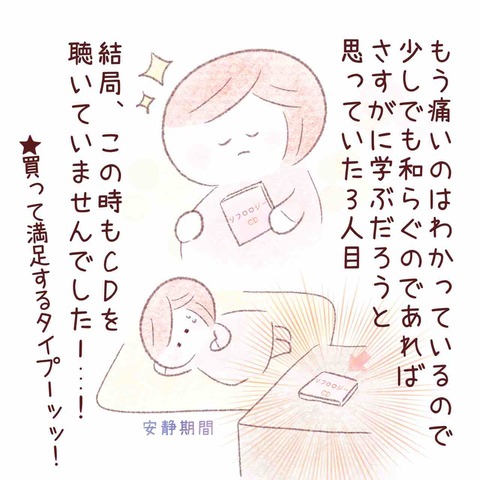 もう痛いのはわかっているので
少しでも和らぐのであれば
さすがに学ぶだろうと
思っていた3人目
ソフロロジー
CD
結局、この時もCDを
聴いていませんでしたー…!
★買って満足するタイプーッッ!
ソフロロジー
CD
安静期間